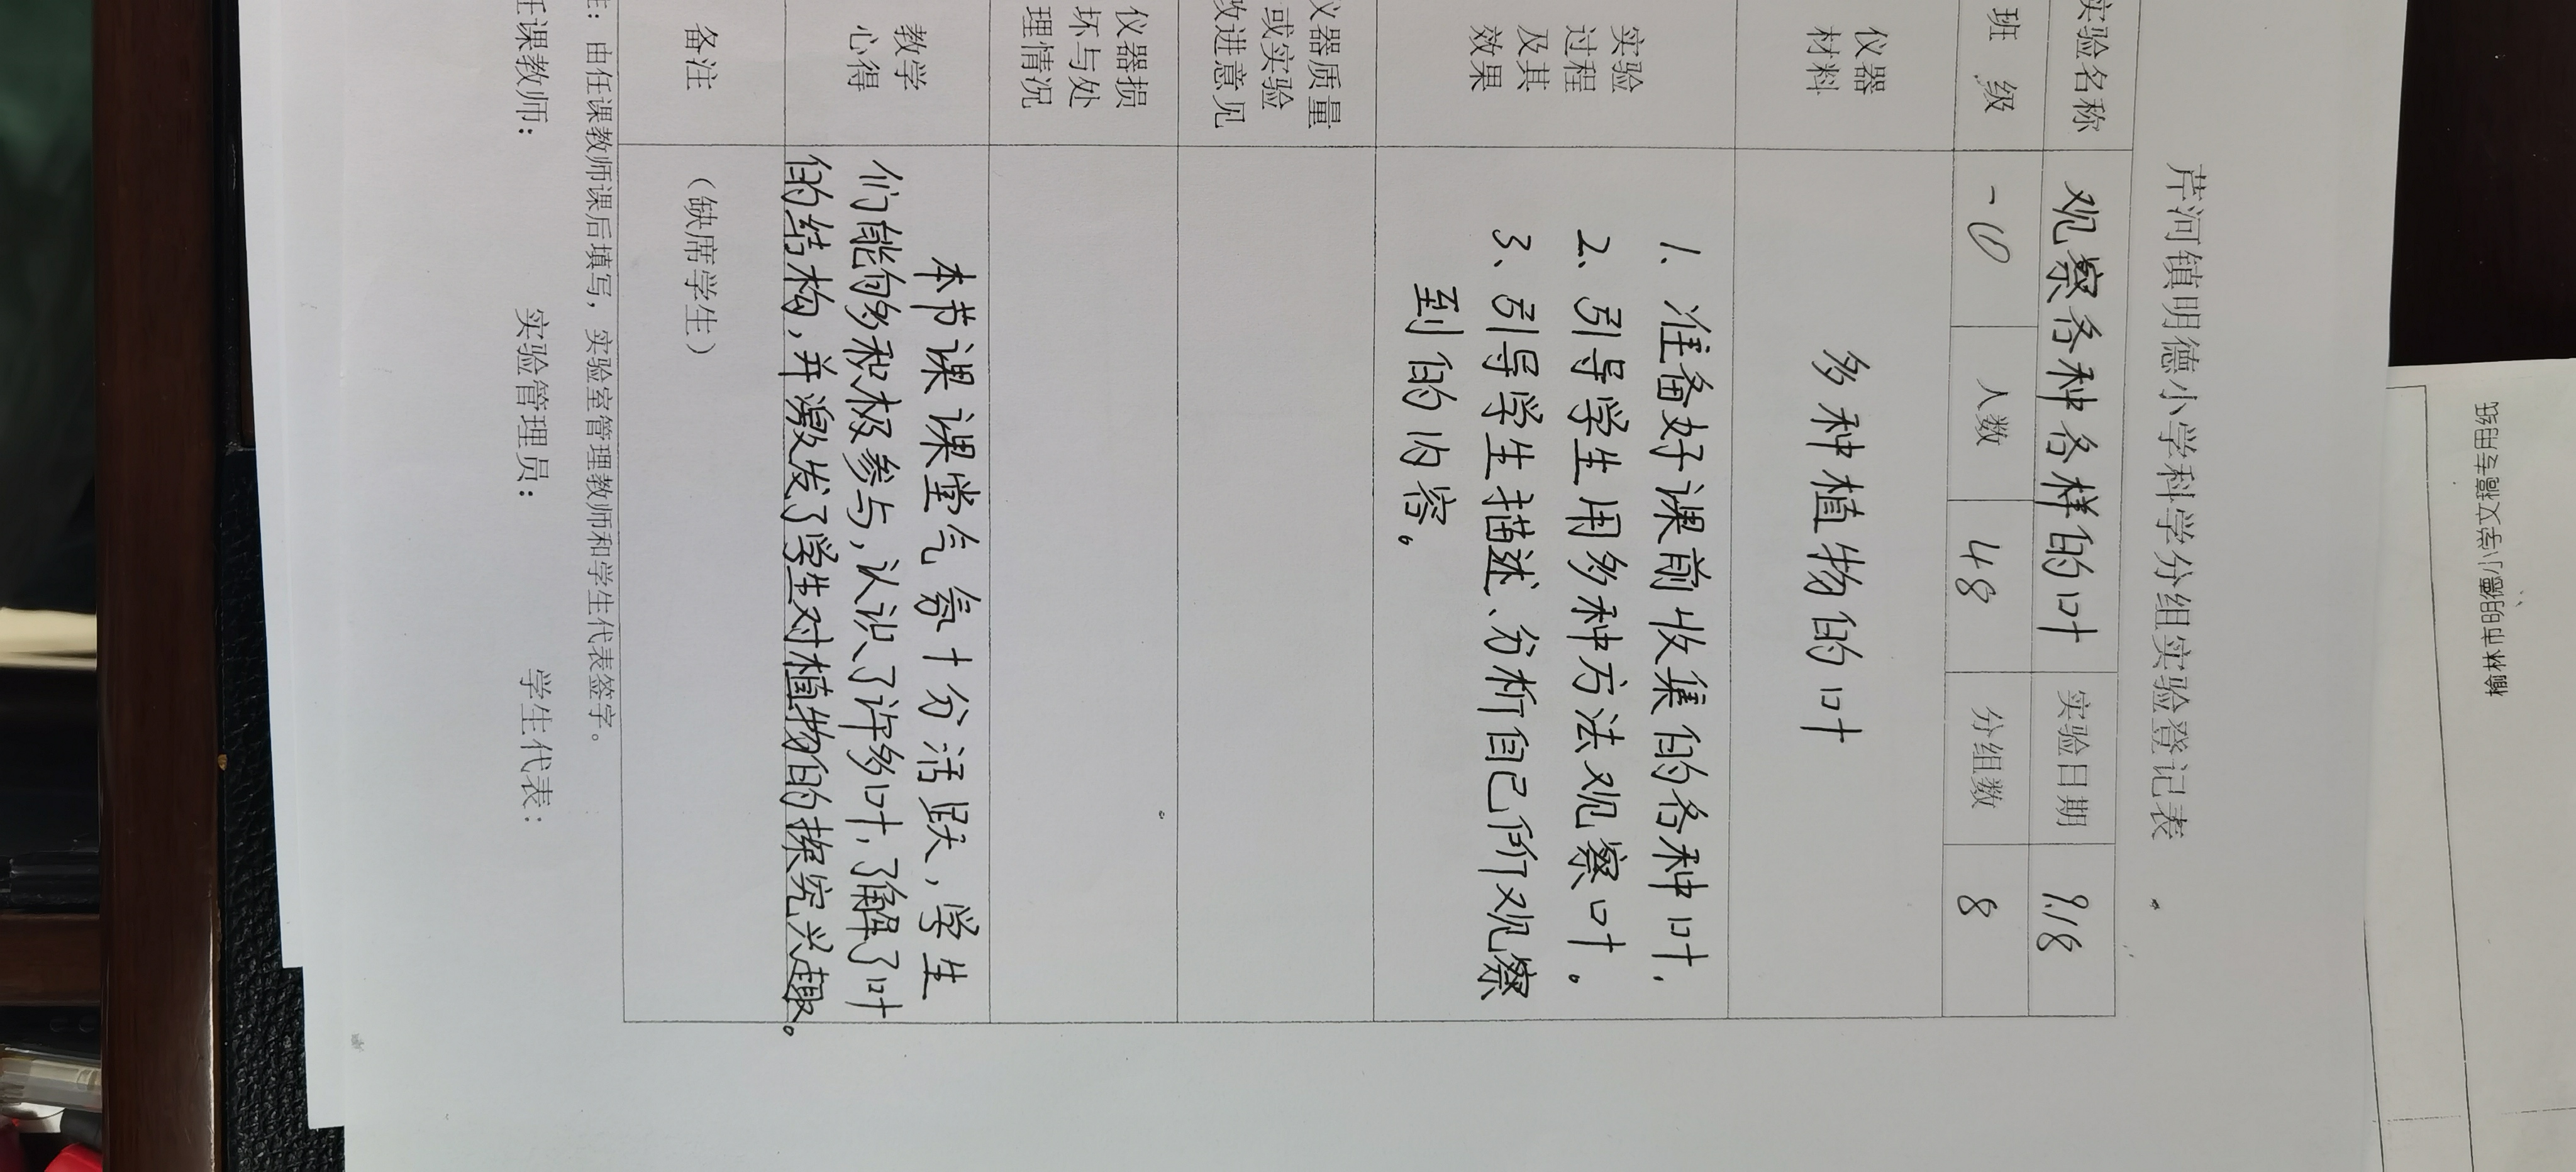 芹河镇明德小学科学分组实验登记表
实验名称 观察各种各样的叶 实验日期 9.18
班 级 人数 48 分组数 8
仪器材料 多种植物的叶
实验过程及其效果
1、准备好课前收集的各种叶,
2、引导学生用多种方法观察叶。
3、引导学生描述、分析自己所观察
到的内容。
仪器质量
或实验
改进意见
仪器损
坏与处
理情况
教学
心得
本节课课堂气氛十分活跃,学生
们能够多积极参与,认识了许多叶,了解了叶
的结构,并激发了学生对植物的探究兴趣。
备注 (缺席学生)
注:由任课教师课后填写,实验室管理教师和学生代表签字。
任课教师: 实验管理员: 学生代表:
榆林市明德小学文稿专用纸